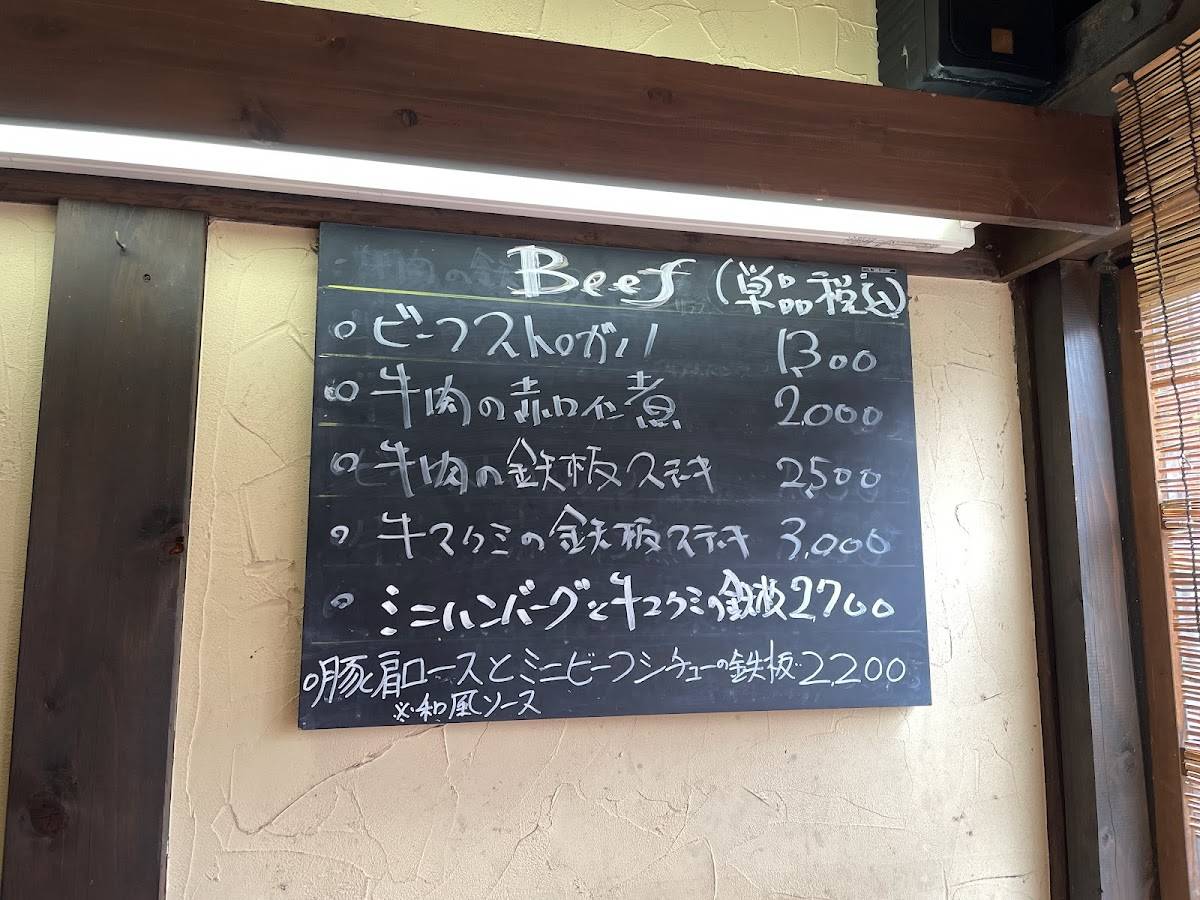 Beef (単品税込)
○ビーフストロガノフ 1300
○牛肉の赤ワイン煮 2,000
○牛肉の鉄板ステーキ 2,500
○牛マクミの鉄板ステーキ 3,000
○ミニハンバーグと牛マクミの鉄板 2700
○豚肩ロースとミニビーフシチューの鉄板 2,200
※和風ソース